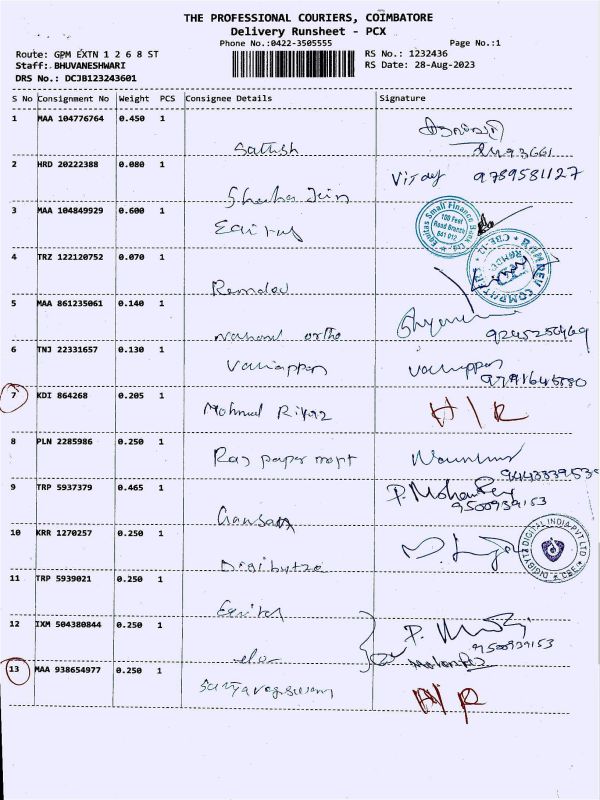 THE PROFESSIONAL COURIERS, COIMBATORE
Delivery Runsheet - PCX
Phone No.:0422-3505555
Page No.:1
Route: GPM EXTN 1 2 6 8 ST
RS No.: 1232436
Staff: BHUVANESHWARI
RS Date: 28-Aug-2023
DRS No.: DCJB123243601
S No Consignment No Weight PCS Consignee Details Signature
1 MAA 104776764 0.450 1
Sathish
2 HRD 20222388 0.080 1
Vijay 9789581127
3 MAA 104849929 0.600 1
Equitas
Equitas Small Finance Bank Ltd. 100 Feet Road Branch 641 012
4 TRZ 122120752 0.070 1
Ramdev
5 MAA 861235061 0.140 1
national ortho
6 TNJ 22331657 0.130 1
Valliappan
7 KDI 864268 0.205 1
H/R
8 PLN 2285986 0.250 1
Raj paper mart
9 TRP 5937379 0.465 1
9500939153
10 KRR 1270257 0.250 1
DIGIBYTZ DIGITAL INDIA PVT LTD CBE
11 TRP 5939021 0.250 1
Equitas
12 IXM 504380844 0.250 1
9500939153
13 MAA 938654977 0.250 1
H/R